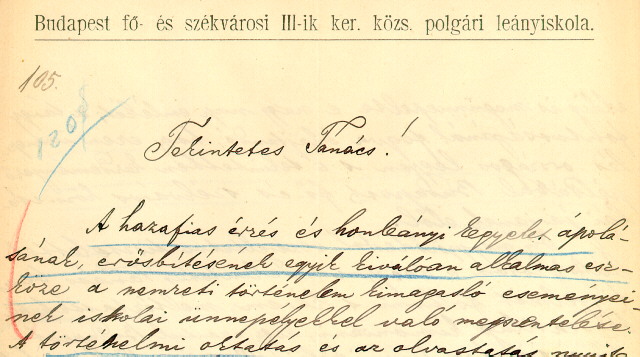 Budapest fő- és székvárosi III-ik ker. közs. polgári leányiskola.
105.
Tekintetes Tanács!
A hazafias érzés és honleányi kegyelet ápolá-
sának, erősbítésének egyik kiválóan alkalmas esz-
köze a nemzeti történelem kimagasló eseményei-
nek iskolai ünnepélyekkel való megszentelése.
A történelmi oktatás és az olvastatás